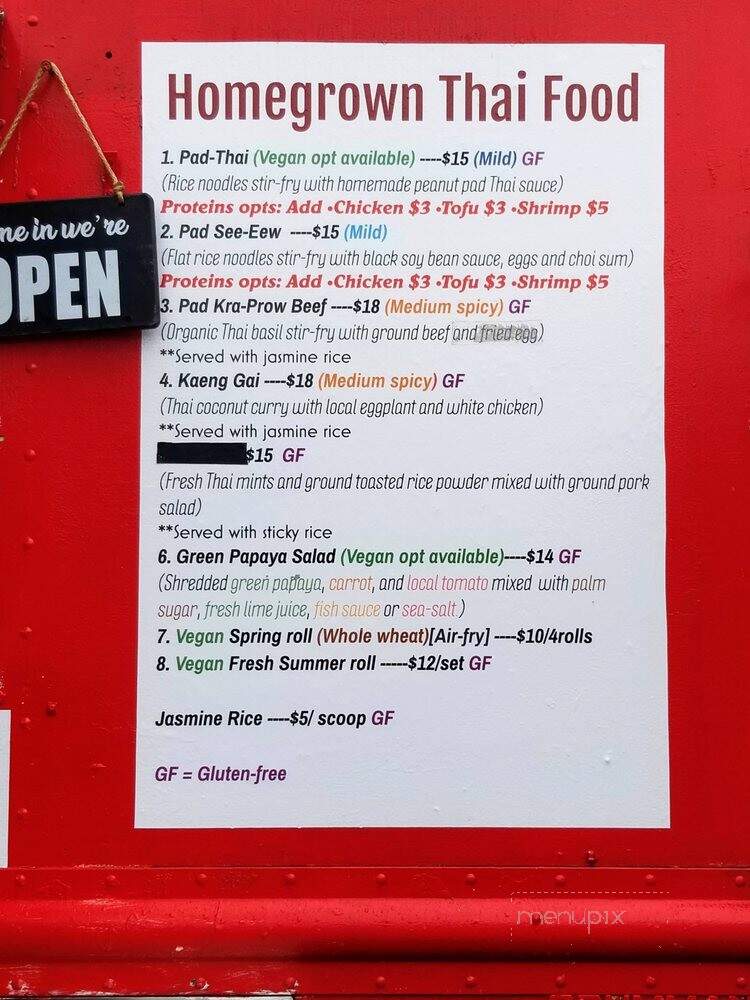 Homegrown Thai Food
1. Pad-Thai (Vegan opt available) ----$15 (Mild) GF
(Rice noodles stir-fry with homemade peanut pad Thai sauce)
Proteins opts: Add •Chicken $3 •Tofu $3 •Shrimp $5
2. Pad See-Eew ----$15 (Mild)
(Flat rice noodles stir-fry with black soy bean sauce, eggs and choi sum)
Proteins opts: Add •Chicken $3 •Tofu $3 •Shrimp $5
3. Pad Kra-Prow Beef ----$18 (Medium spicy) GF
(Organic Thai basil stir-fry with ground beef and fried egg)
**Served with jasmine rice
4. Kaeng Gai ----$18 (Medium spicy) GF
(Thai coconut curry with local eggplant and white chicken)
**Served with jasmine rice
$15 GF
(Fresh Thai mints and ground toasted rice powder mixed with ground pork
salad)
**Served with sticky rice
6. Green Papaya Salad (Vegan opt available)----$14 GF
(Shredded green papaya, carrot, and local tomato mixed with palm
sugar, fresh lime juice, fish sauce or sea-salt )
7. Vegan Spring roll (Whole wheat)[Air-fry] ----$10/4rolls
8. Vegan Fresh Summer roll -----$12/set GF
Jasmine Rice ----$5/ scoop GF
GF = Gluten-free
me in we're
OPEN
menupix